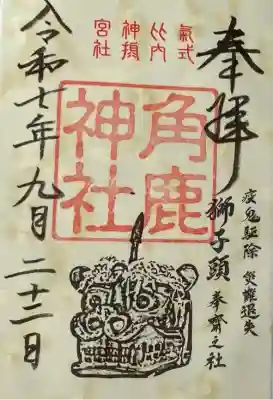 奉拝
疫鬼駆除 災難退失
獅子頭 奉齋之社
角鹿
神社
氣式
比内
神摂
宮社
令和七年九月二十二日